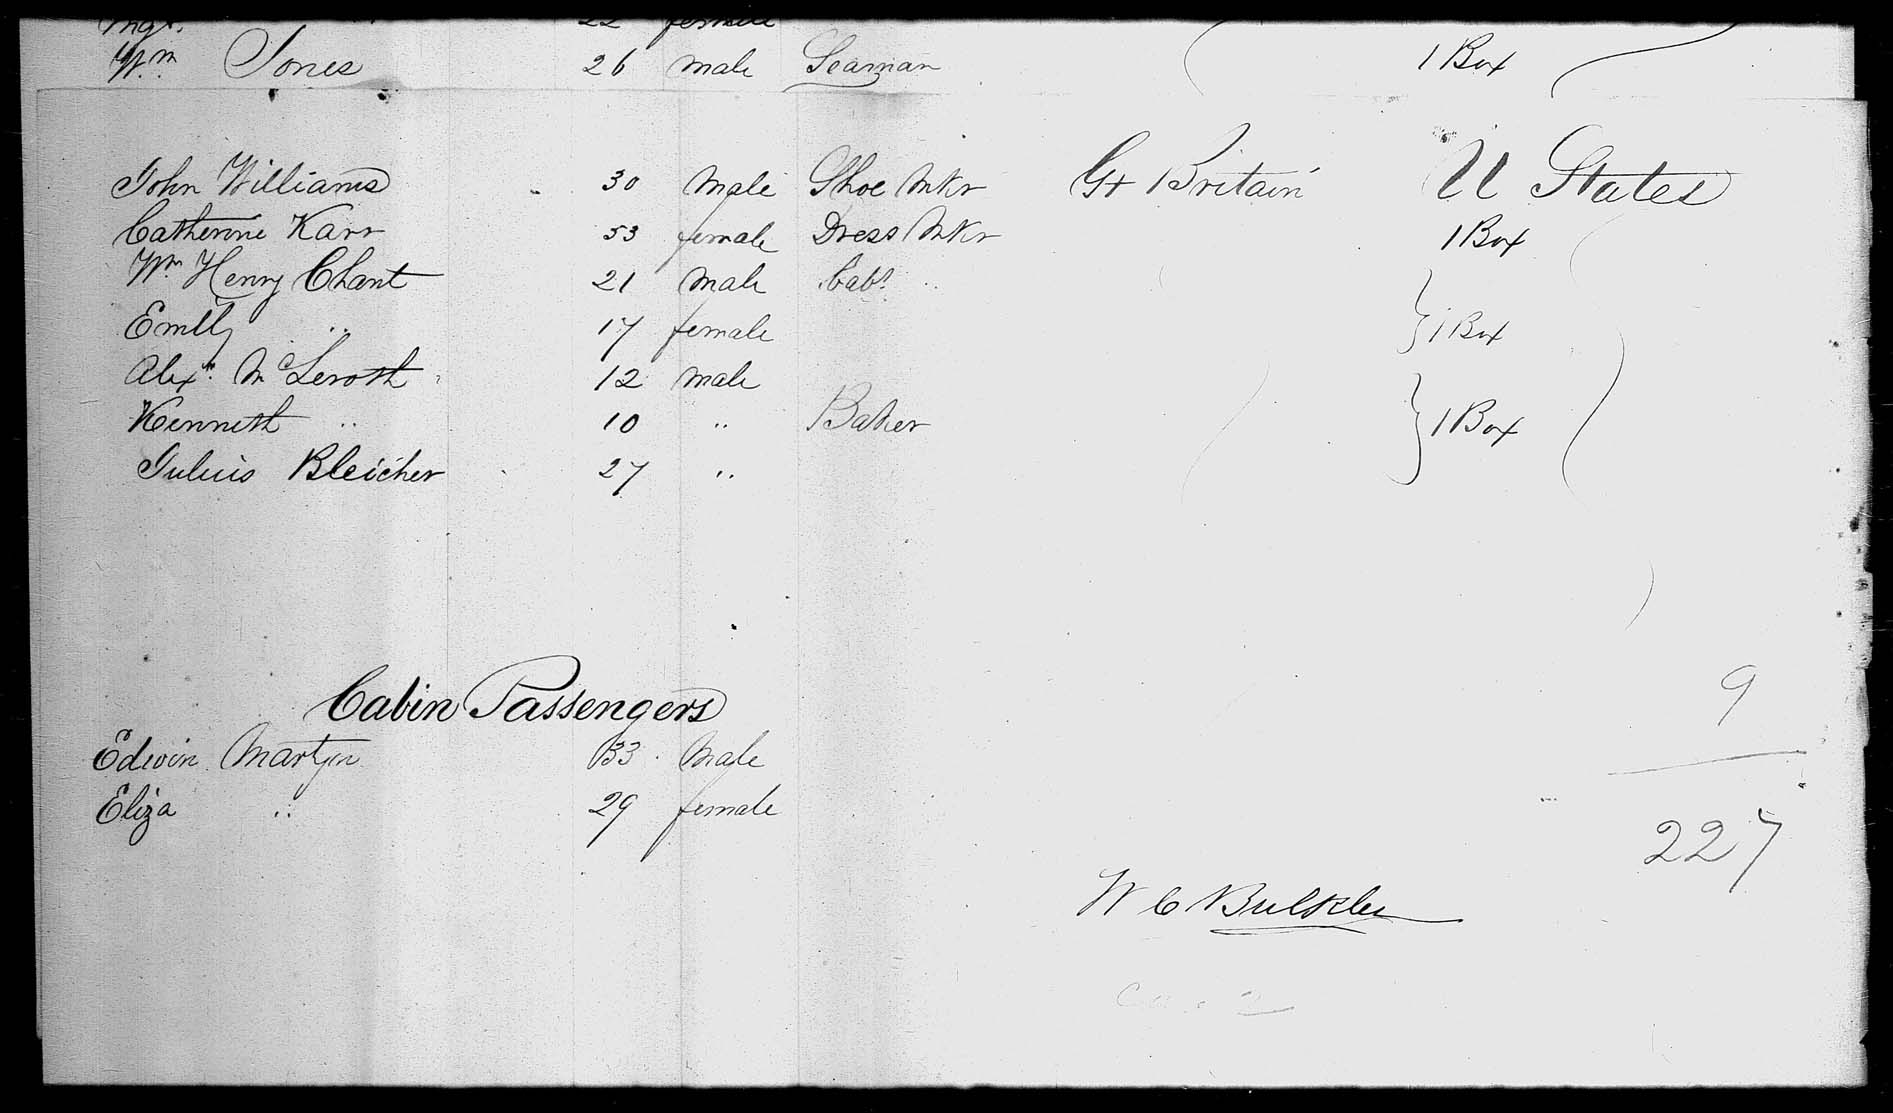 22 female
Wm Jones 26 male Seaman 1 Box
John Williams 30 male Shoe Mkr Gt Britain U States
Catherine Karr 53 female Dress Mkr 1 Box
Wm Henry Chant 21 male Cabt
Emily " 17 female 1 Box
Alexr McLeroth 12 male
Kenneth " 10 " Baker 1 Box
Julius Bleicher 27 "
Cabin Passengers
9
Edwin Martyn 33 male
Eliza " 29 female
227
W C Bulkley